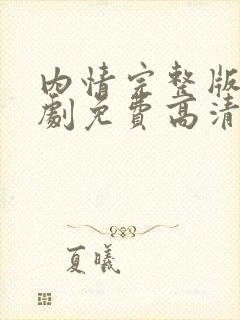 内情完整版
劇免費高清
夏曦